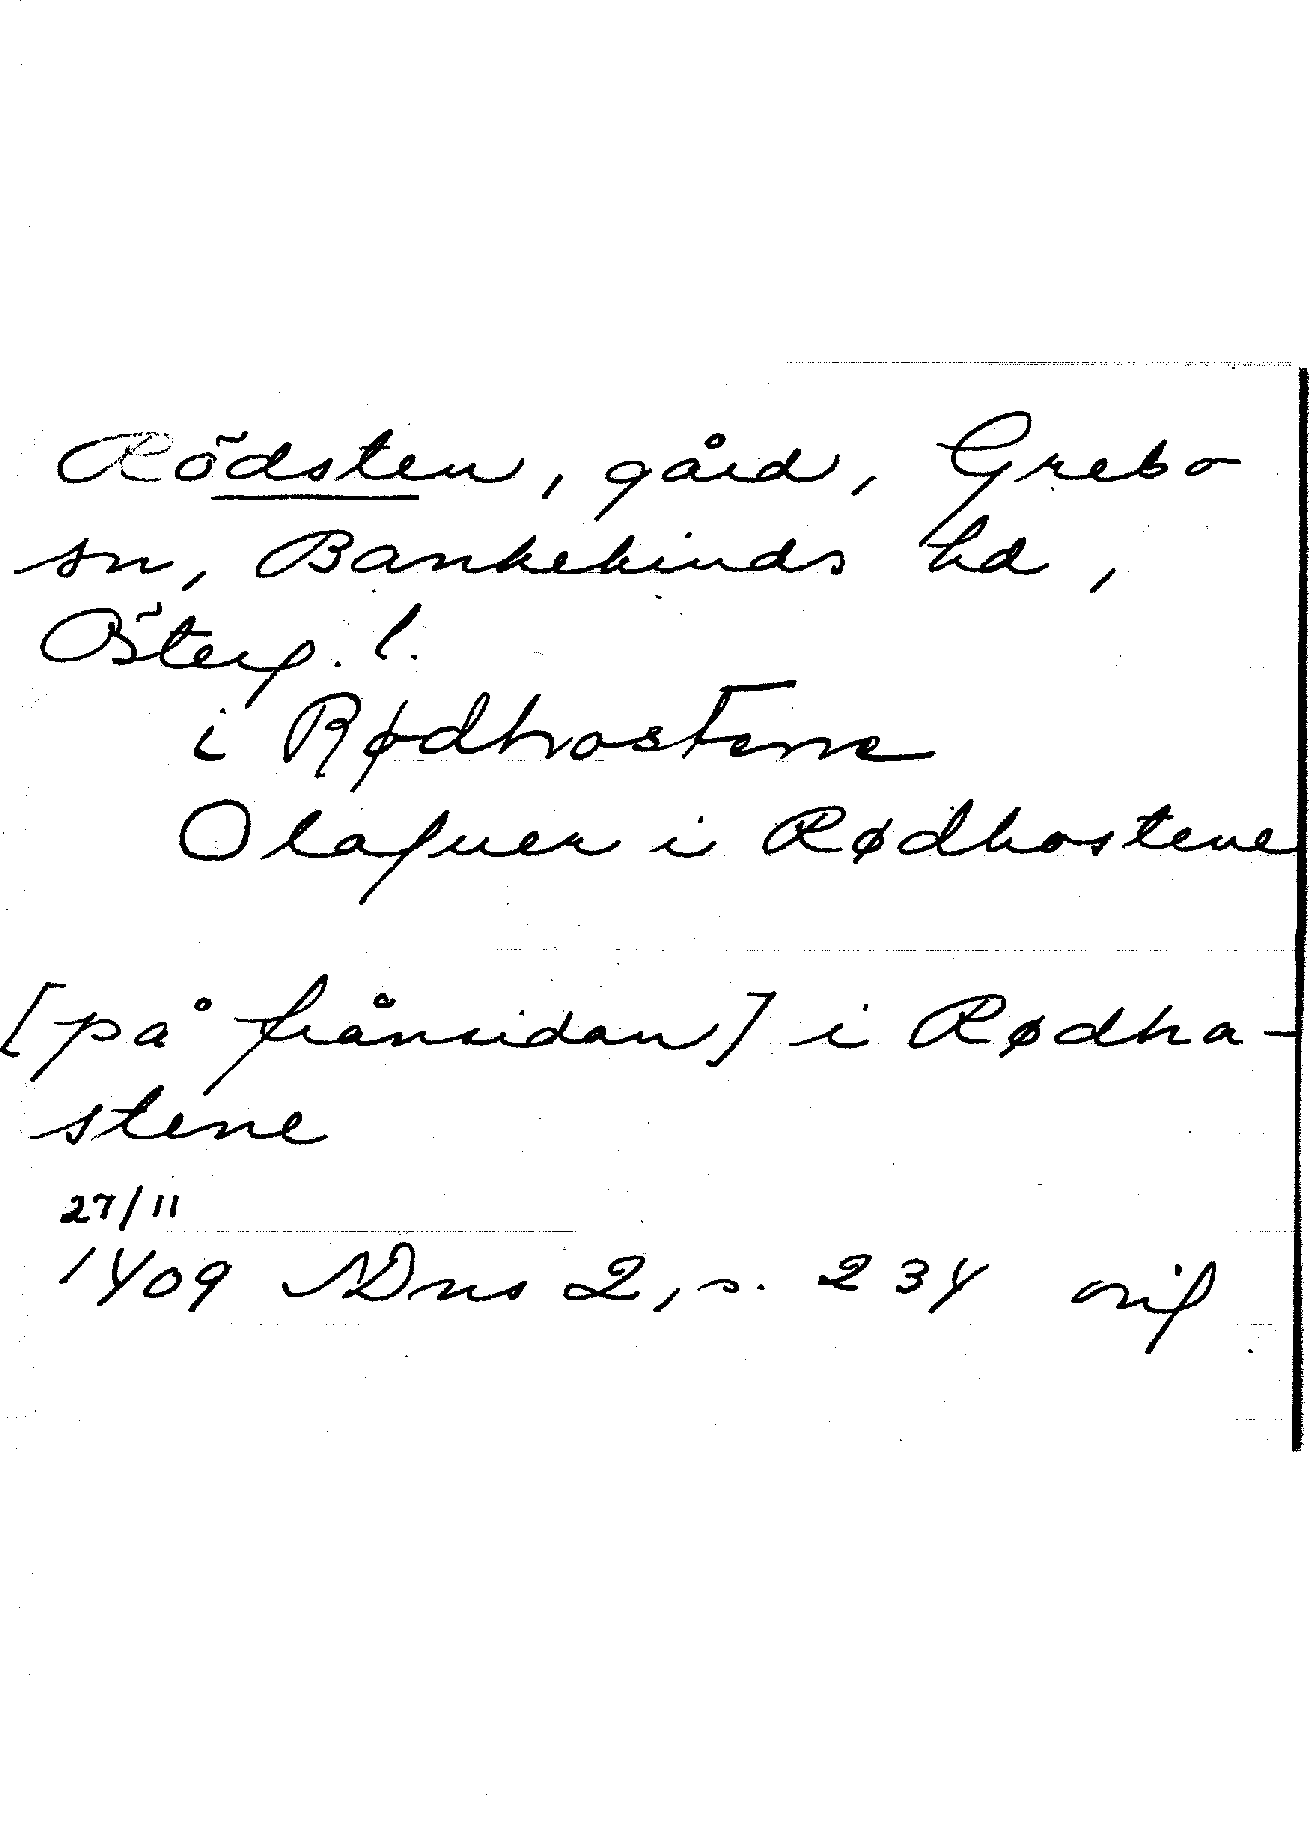 Rödsten, gård, Grebo
sn, Bankekinds hd,
Österg. l.
i Rødhrostene
Olafuer i Rødhostene
[på frånsidan] i Rødha-
stene
27/11
1409 SDns 2, s. 234 orig